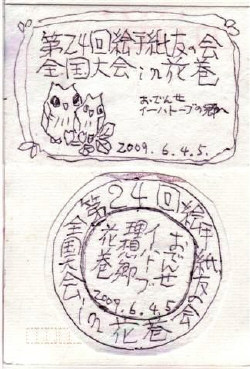 第24回絵手紙友の会
全国大会in花巻
おでんせ
イーハトーブの郷へ
2009.6.4.5.
第24回絵手紙友の会
全国大会in花巻
おでんせ
イーハトーブ
理想郷
花巻
2009.6.4.5